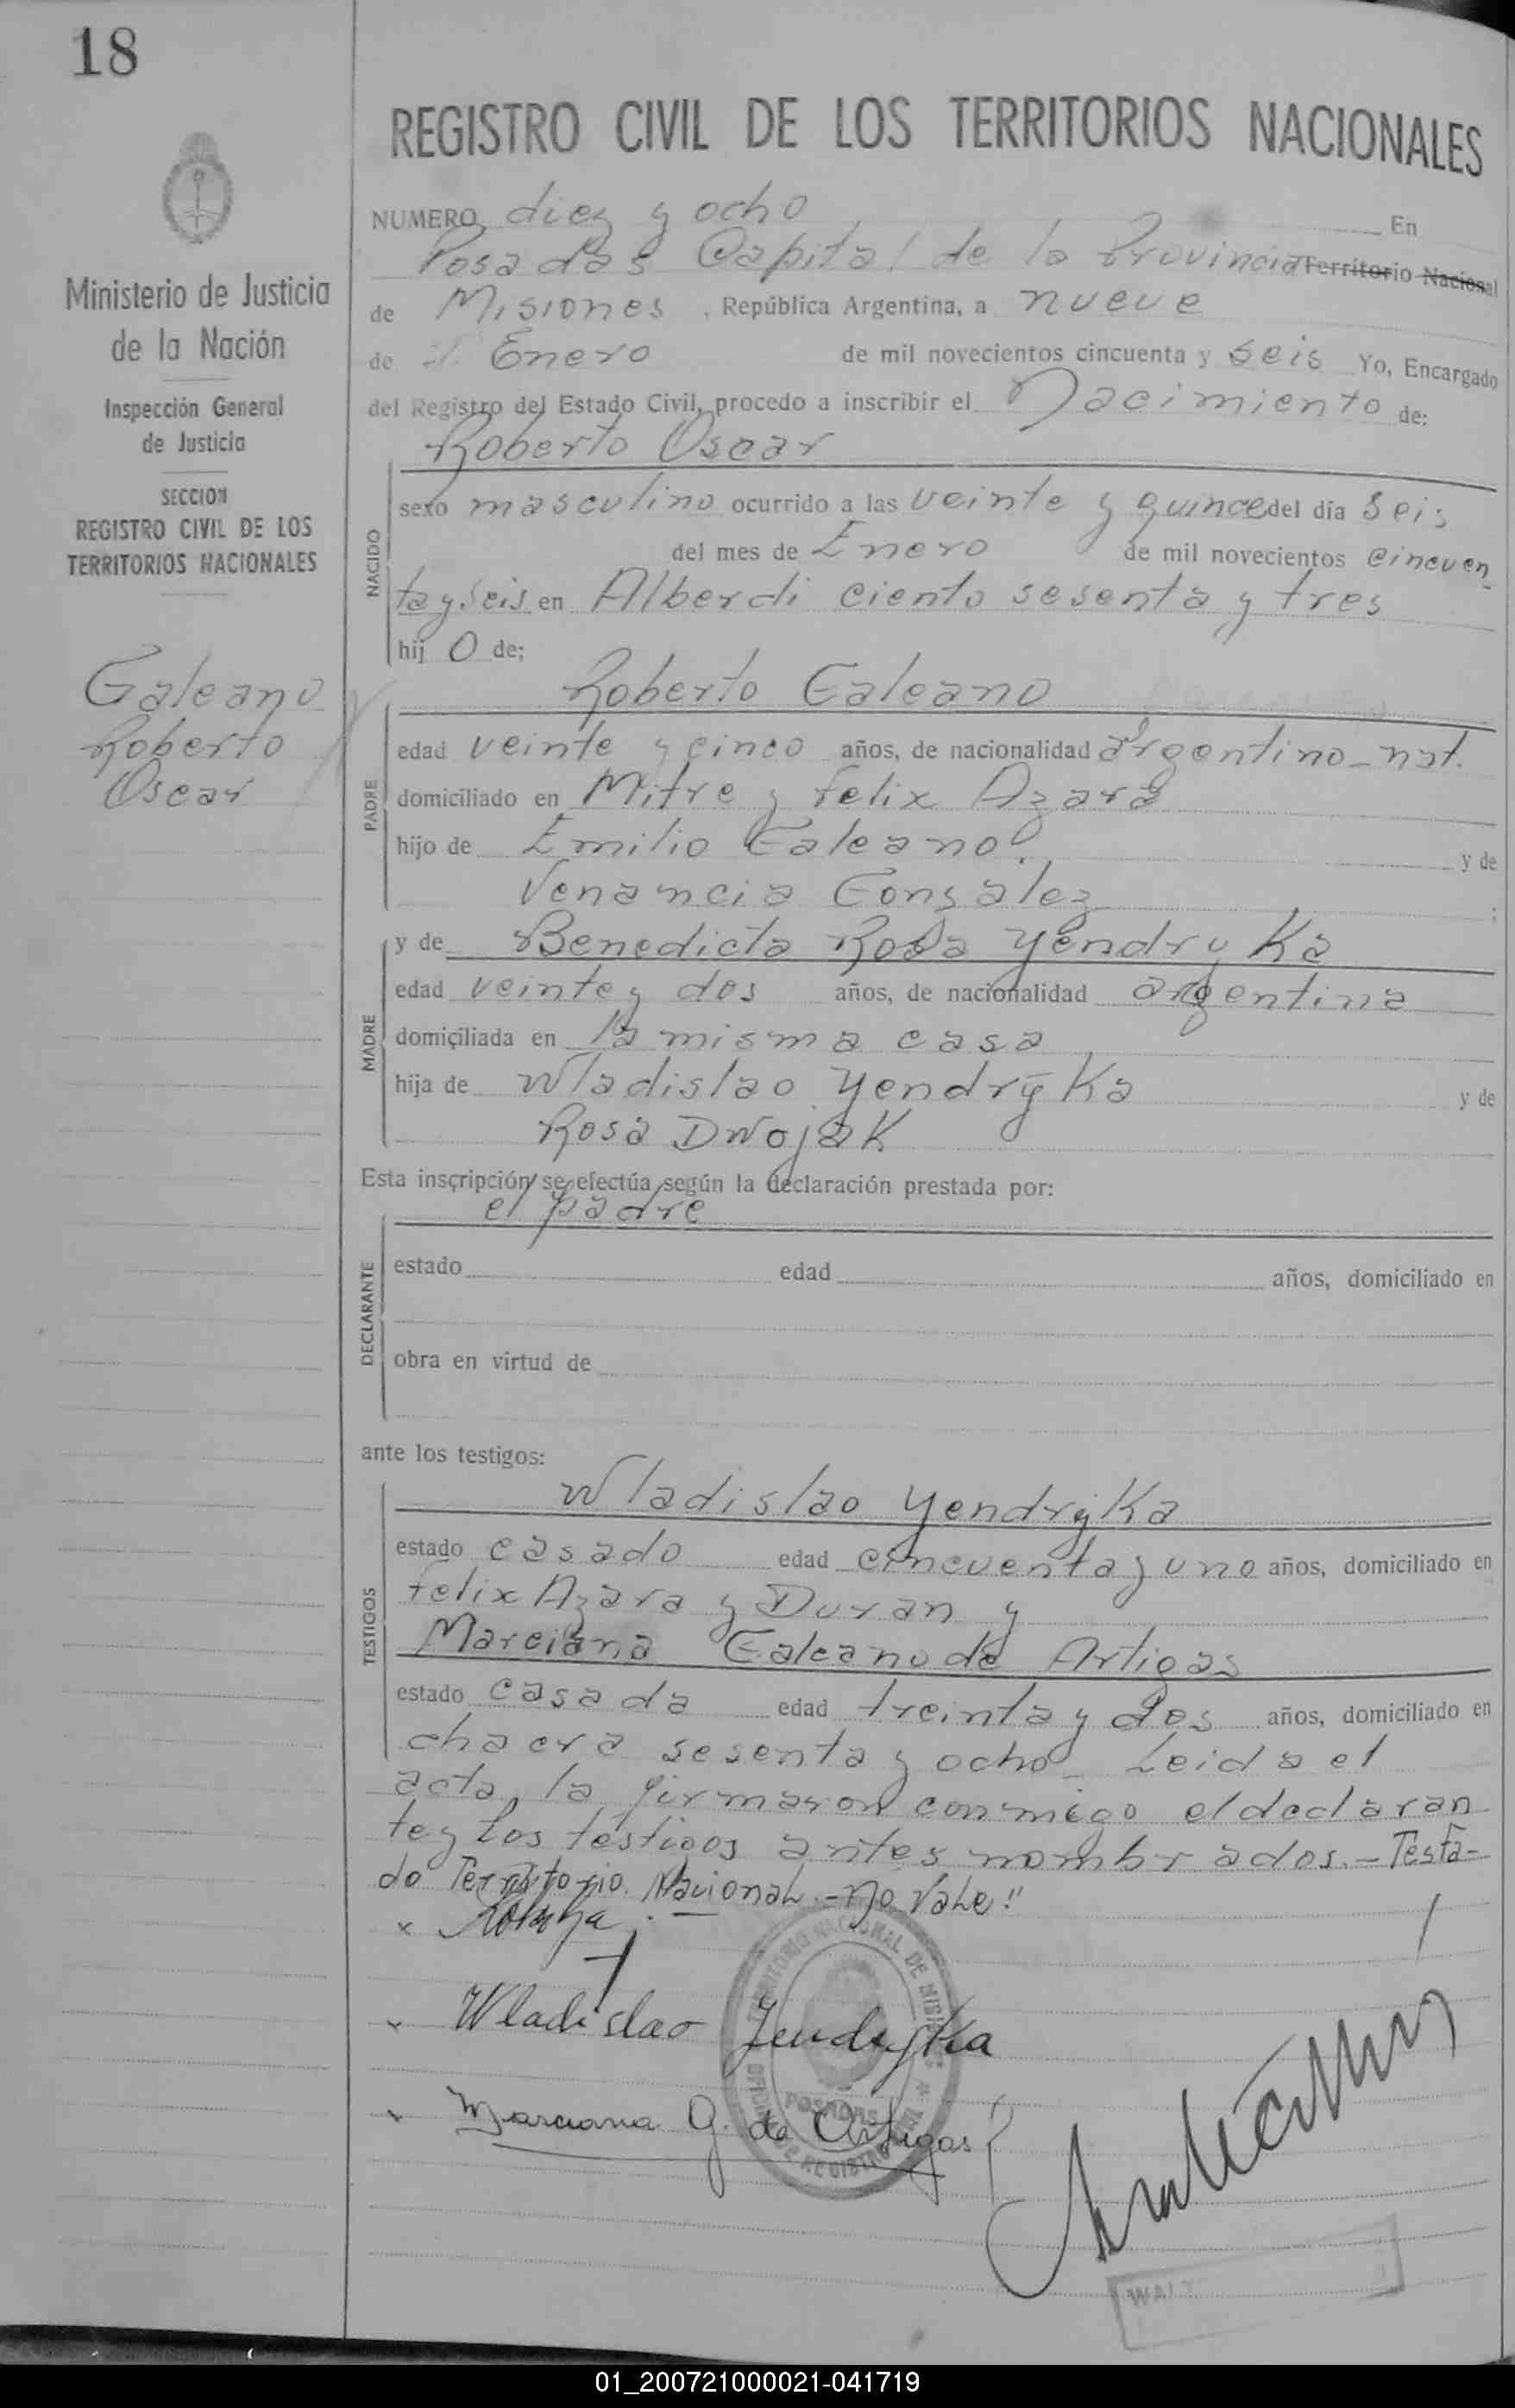 18
REGISTRO CIVIL DE LOS TERRITORIOS NACIONALES
Ministerio de Justicia
de la Nación
Inspección General
de Justicia
SECCION
REGISTRO CIVIL DE LOS
TERRITORIOS NACIONALES
Galeano
Roberto
Oscar
NUMERO diez y ocho En
Posadas Capital de la Provincia Territorio Nacional
de Misiones , República Argentina, a nueve
de Enero de mil novecientos cincuenta y seis Yo, Encargado
del Registro del Estado Civil, procedo a inscribir el Nacimiento de:
Roberto Oscar
NACIDO
sexo masculino ocurrido a las veinte y quince del día seis
del mes de Enero de mil novecientos cincuen
ta y seis en Alberdi ciento sesenta y tres
hij o de;
Roberto Galeano
PADRE
edad veinte y cinco años, de nacionalidad argentino - nat.
domiciliado en Mitre y Felix Azara
hijo de Emilio Galeano y de
Venancia Gonzalez ;
MADRE
y de Benedicta Rosa Yendryka
edad veinte y dos años, de nacionalidad argentina
domiciliada en la misma casa
hija de Wladislao Yendrÿka y de
Rosa Dwojak
Esta inscripción se efectúa según la declaración prestada por:
el padre
DECLARANTE
estado edad años, domiciliado en
obra en virtud de
ante los testigos:
Wladislao Yendrÿka
TESTIGOS
estado casado edad cincuenta y uno años, domiciliado en
Felix Azara y Duran y
Marciana Galeano de Artigas
estado casada edad treinta y dos años, domiciliado en
chacra sesenta y ocho - Leida el
acta, la firmaron conmigo el declaran
te y los testigos antes nombrados. - Testa-
do Territorio Nacional - no vale!!
x
x Wladislao Jendryka
x Marciana G. de Artigas
TERRITORIO NACIONAL DE MISIONES
POSADAS
01_200721000021-041719